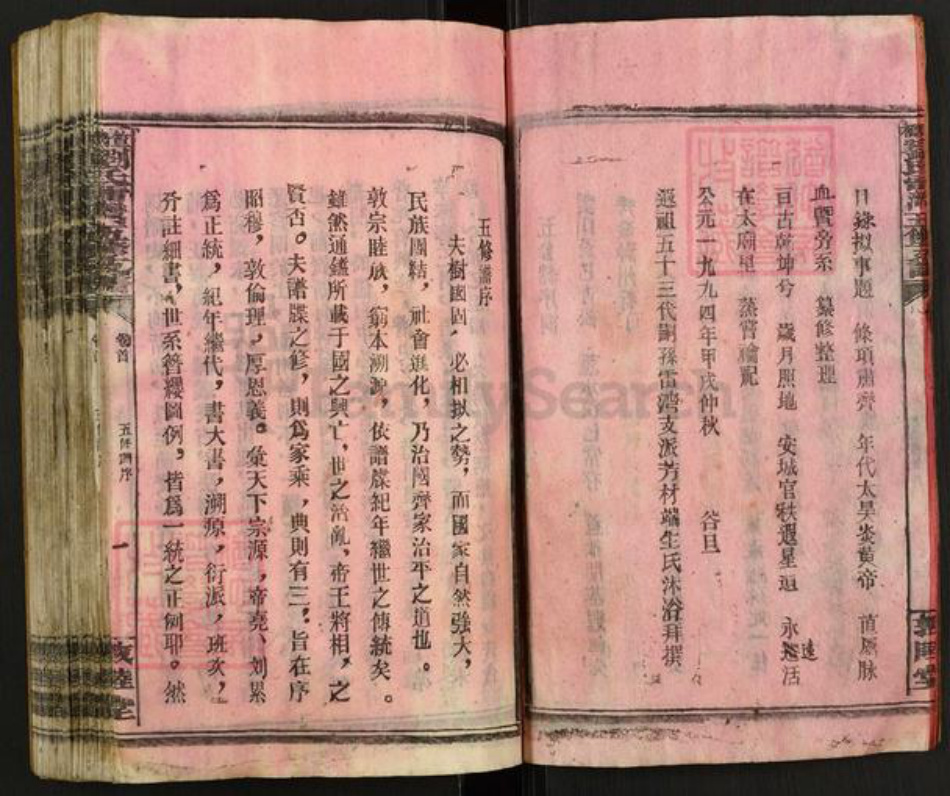 目錄拟事題 條項肅齊 年代太旱炎黄帝 苗裔脉
血買旁系 纂修整理
亘古乾坤兮 歲月照地 安城官秩遐星迴 永遠活
在太廟里 蒸嘗禴祀
公元一九九四年甲戌仲秋 谷旦
遐祖五十三代嗣孫雷濟支派芳材端生氏沐浴拜撰
五修譜序
夫樹國固，必相拟之勢，而國家自然強大，
民族團結，社會進化，乃治國齊家治平之道也。
敦宗睦族，窮本溯源，依譜牒紀年繼世之傳統矣。
雖然通鑑所載于國之興亡，世之治亂，帝王將相，之
賢否。夫譜牒之修，則爲家乘，典則有三，旨在序
昭穆，敦倫理，厚恩義。彙天下宗源，帝堯、刘累
爲正統，紀年繼代，書大書，溯源，衍派，班次，
分註細書，世系簪纓圖例，皆爲一統之正例耶。然
卷首
五修譜序
一
敦睦堂
FamilySearch